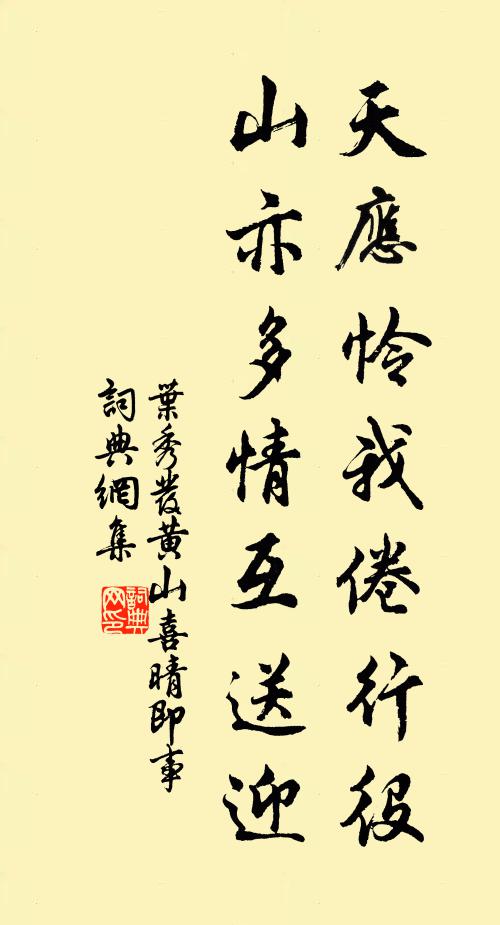 天應怜我倦行役
山亦多情互送迎
葉秀發黃山喜晴即事
詞典網集
詞典
网印